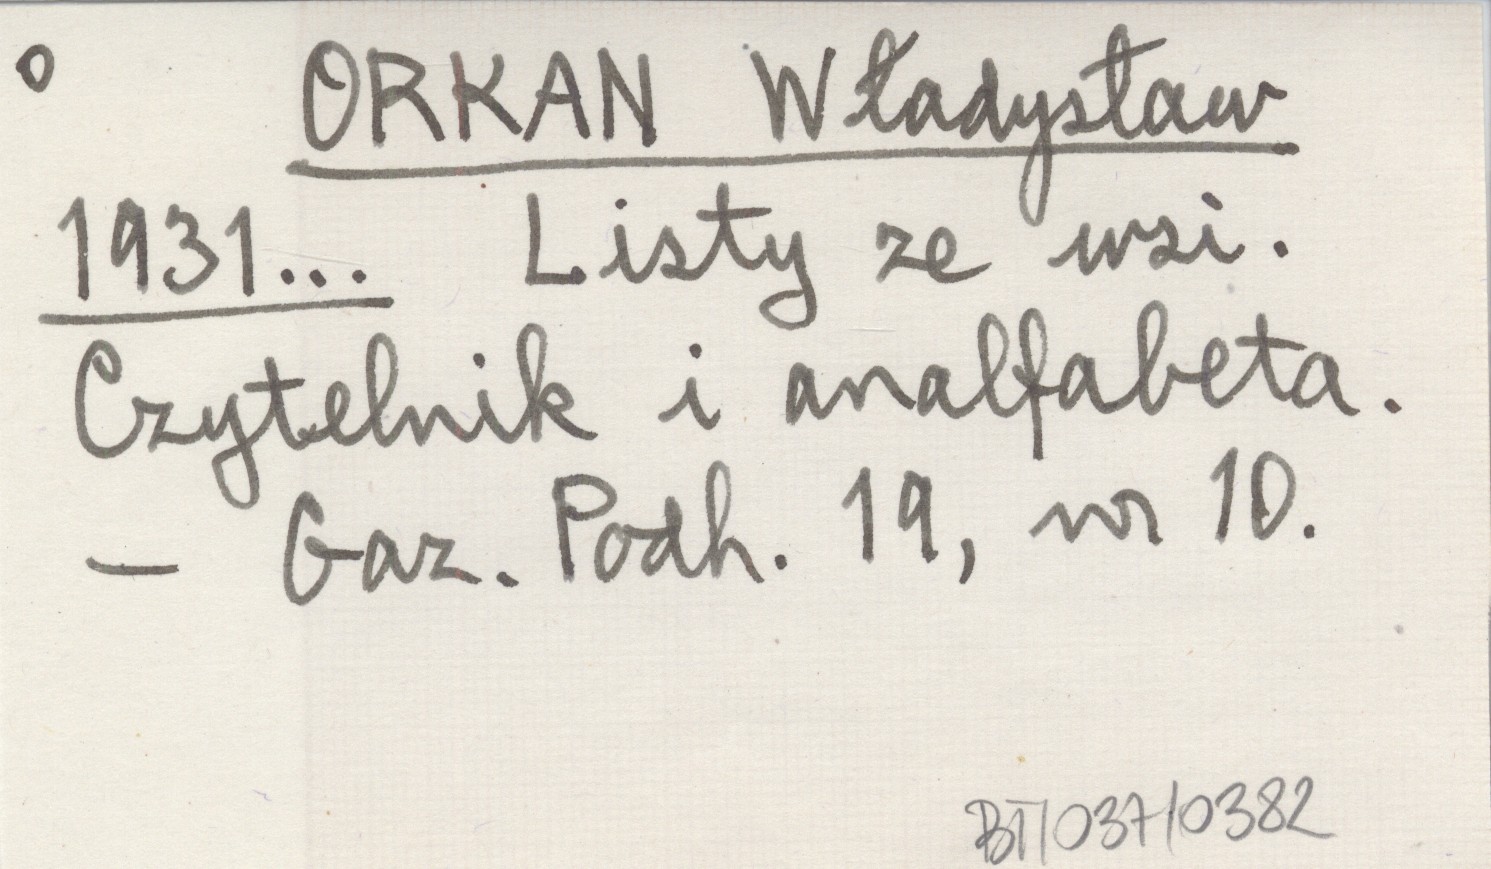 o ORKAN Władysław
1931... Listy ze wsi.
Czytelnik i analfabeta.
— Gaz. Podh. 19, nr 10.
BT/037/0382